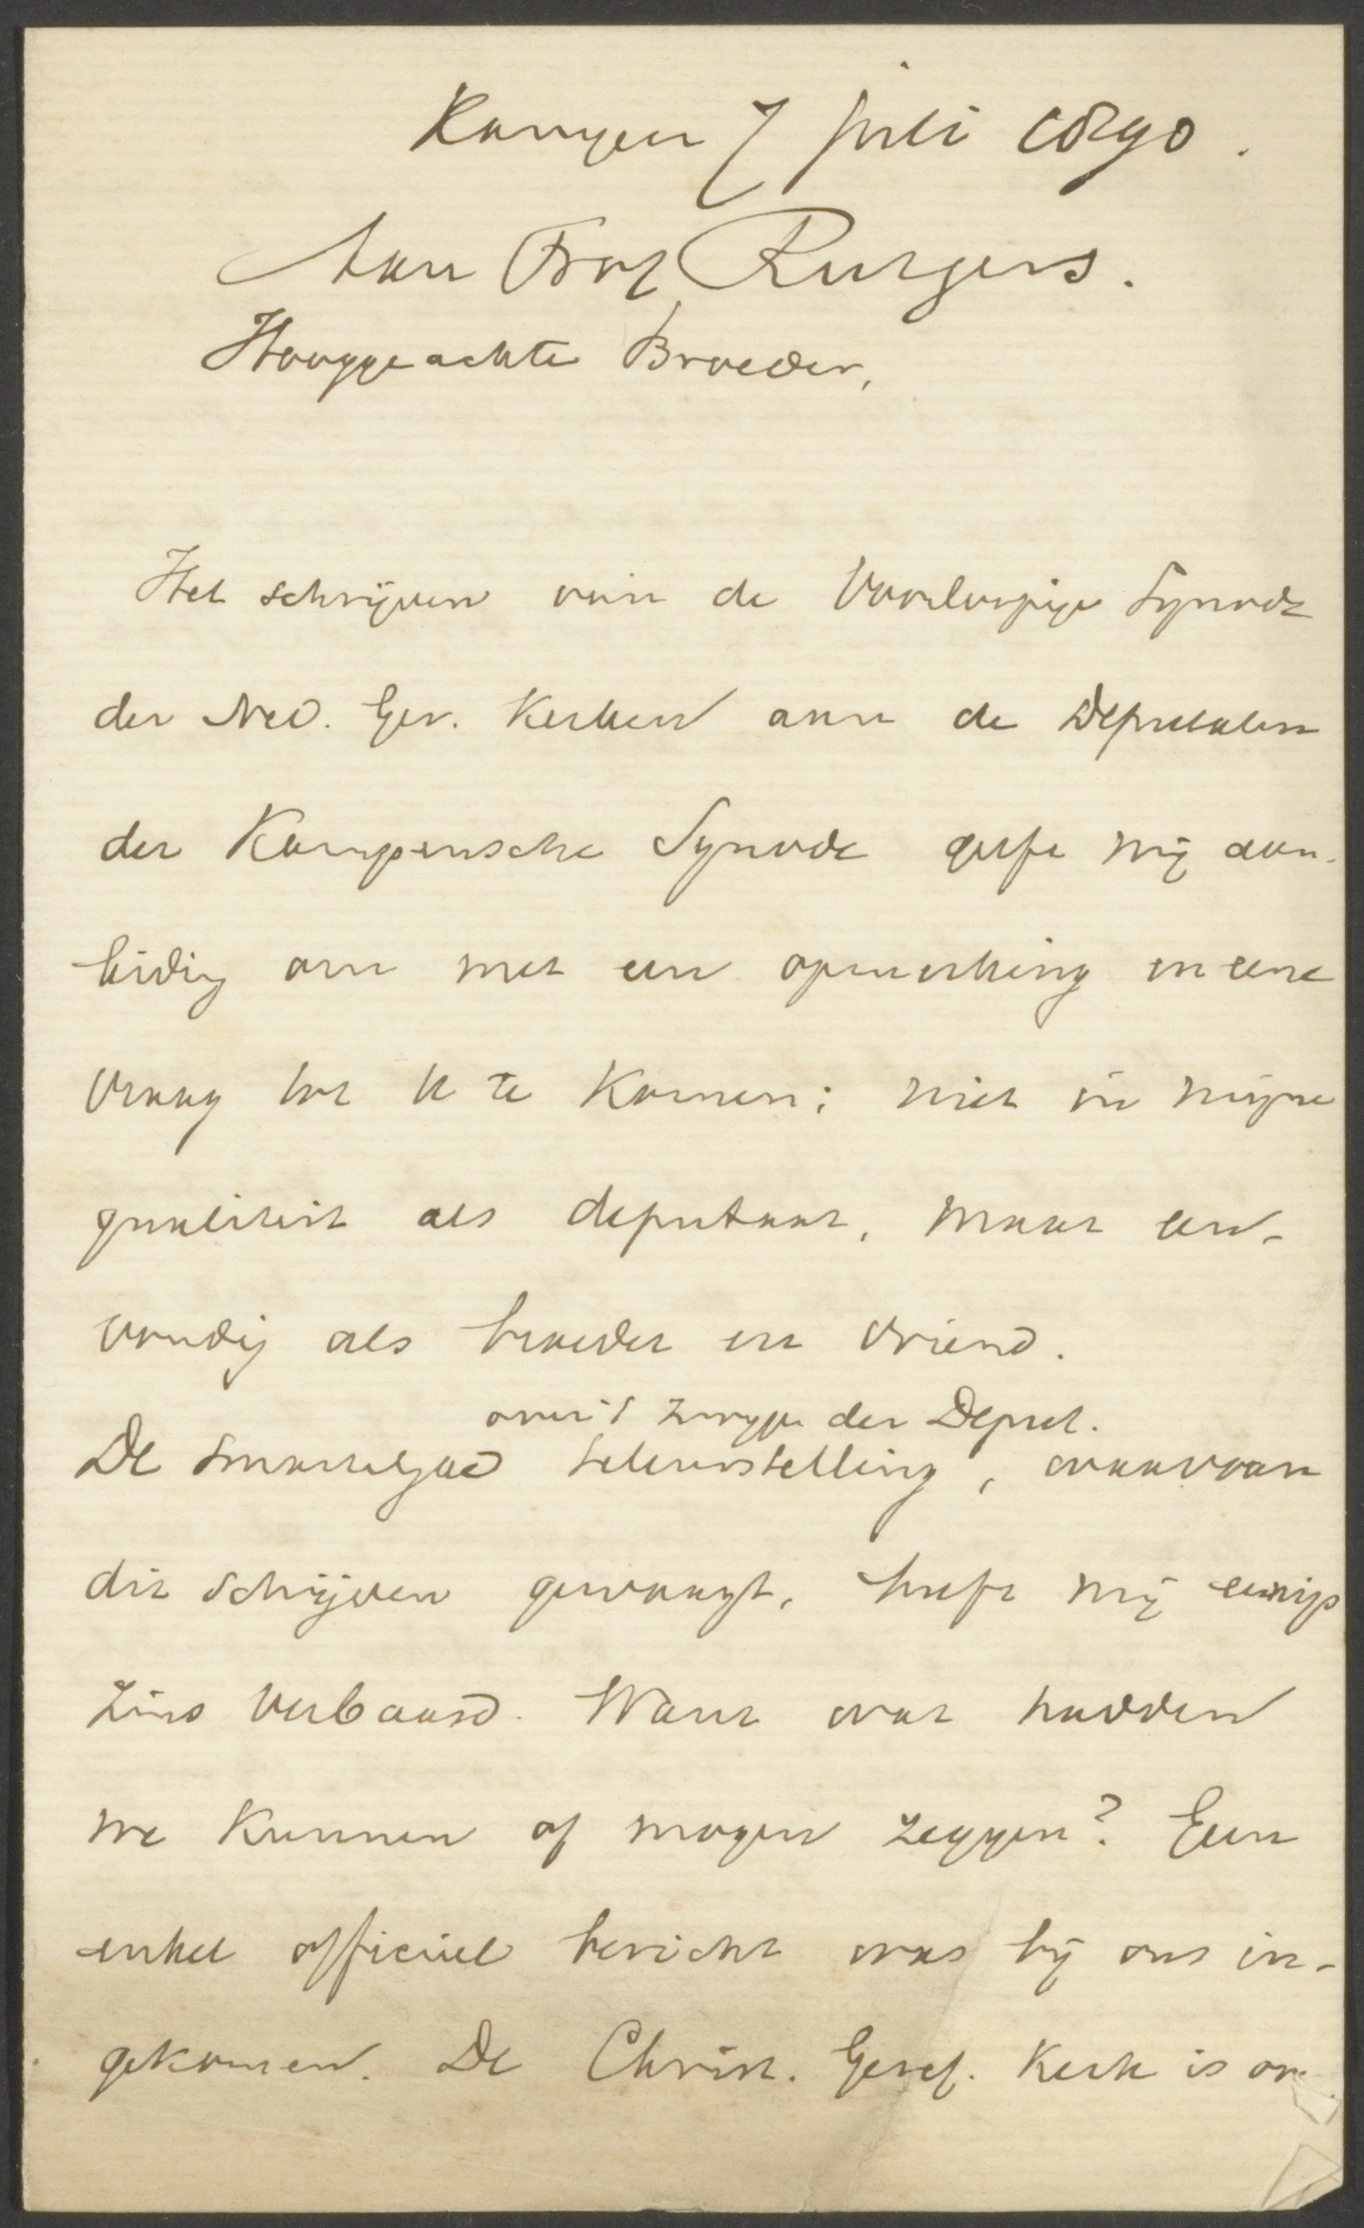 Kampen 7 Juli 1890.
Aan Prof Rutgers.
Hooggeachte Broeder,
Het schrijven van de Voorloopige Synode
der Ned. Ger. Kerken aan de Deputaten
der Kampensche Synode geeft mij aan-
leidig om met een opmerking en eene
vraag tot U te komen; niet in mijne
qualiteit als deputaat, maar een-
voudig als broeder en vriend.
over 't zwijgen der Deput.
De smartelijke teleurstelling, waarvan
dit schrijven gewaagt, heeft mij eenigs
zins verbaasd. Want wat hadden
we kunnen of mogen zeggen? Geen
enkel officieel bericht was bij ons in-
gekomen. De Christ. Geref. Kerk is